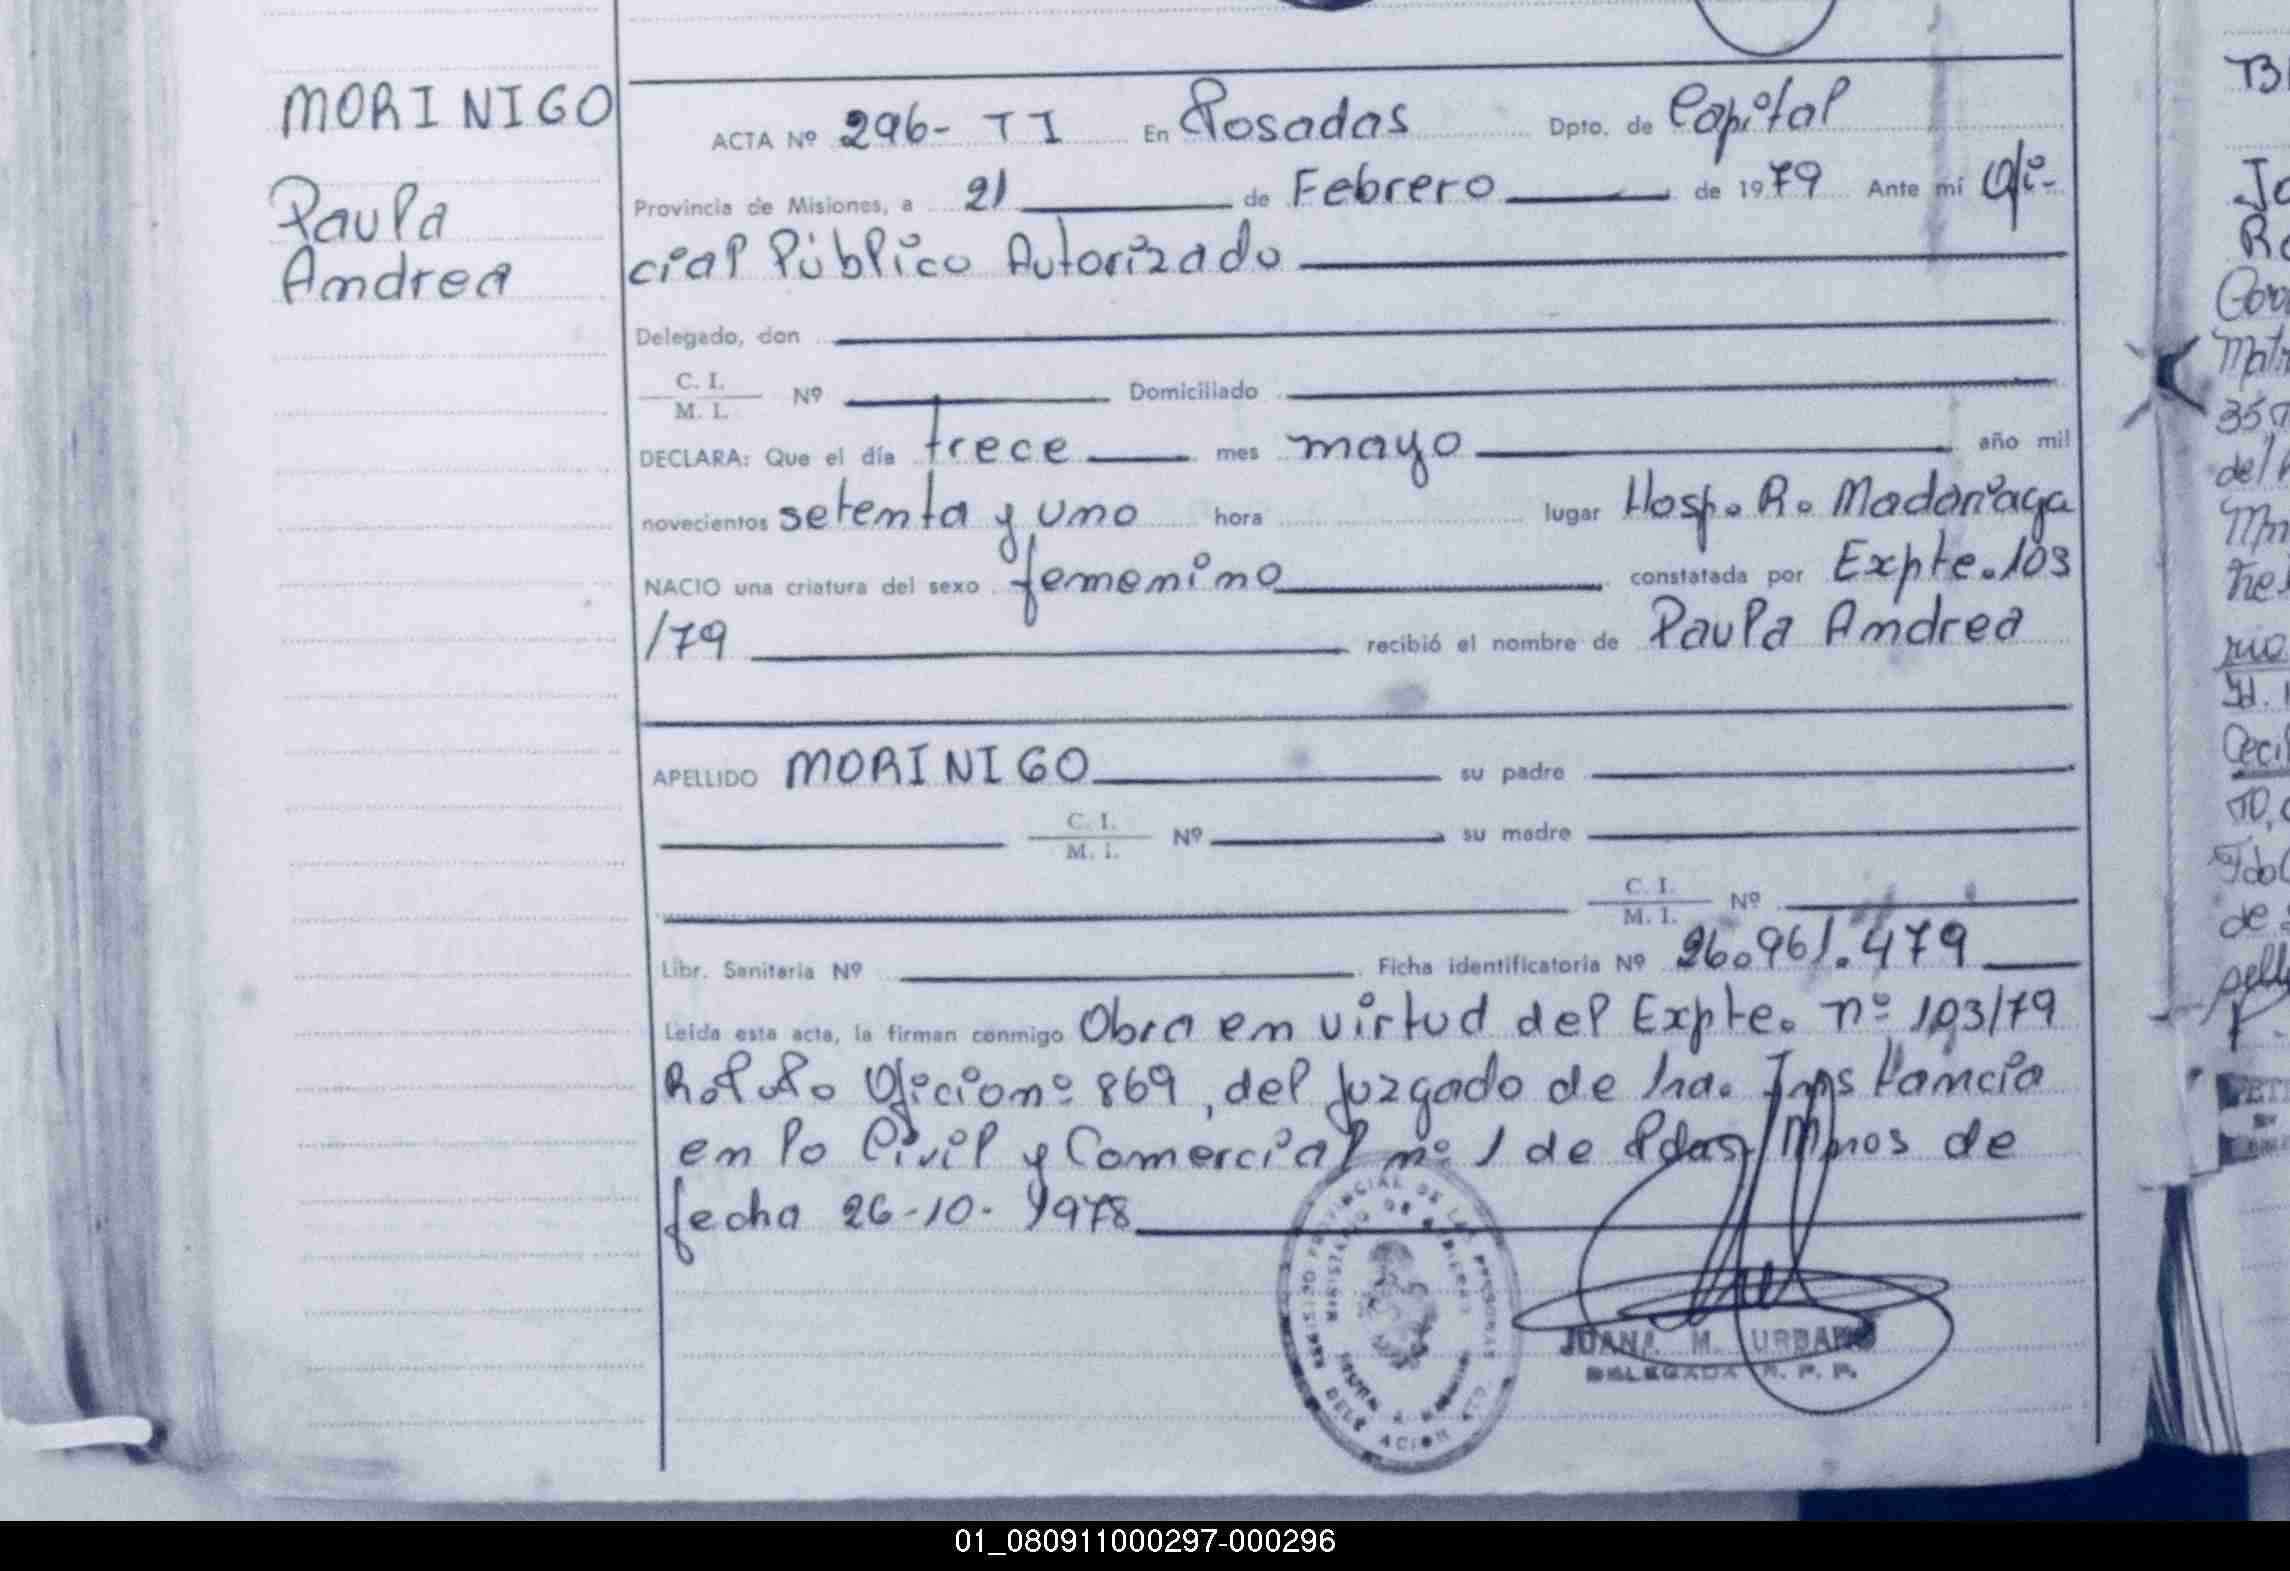 MORINIGO
Paula
Andrea
ACTA Nº 296- TI En Posadas Dpto. de Capital
Provincia de Misiones, a 21 de Febrero de 1979 Ante mí Ofi-
cial Público Autorizado
Delegado, don
C. I.
M. I. Nº Domiciliado
DECLARA: Que el día trece mes mayo año mil
novecientos setenta y uno hora lugar Hosp. R. Madariaga
NACIO una criatura del sexo femenino constatada por Expte. 103
/79 recibió el nombre de Paula Andrea
APELLIDO MORINIGO su padre
C. I.
M. I. Nº su madre
C. I.
M. I. Nº
Libr. Sanitaria Nº Ficha identificatoria Nº 26.961.479
Leída esta acta, la firman conmigo Obra en virtud del Expte. nº 103/79
Oficio nº 869, del Juzgado de 1ra. Instancia
en lo Civil y Comercial nº 1 de Pdas/Mnes de
fecha 26-10-1978
JUANA M. URBANO
DELEGADA R. P. P.
01_080911000297-000296